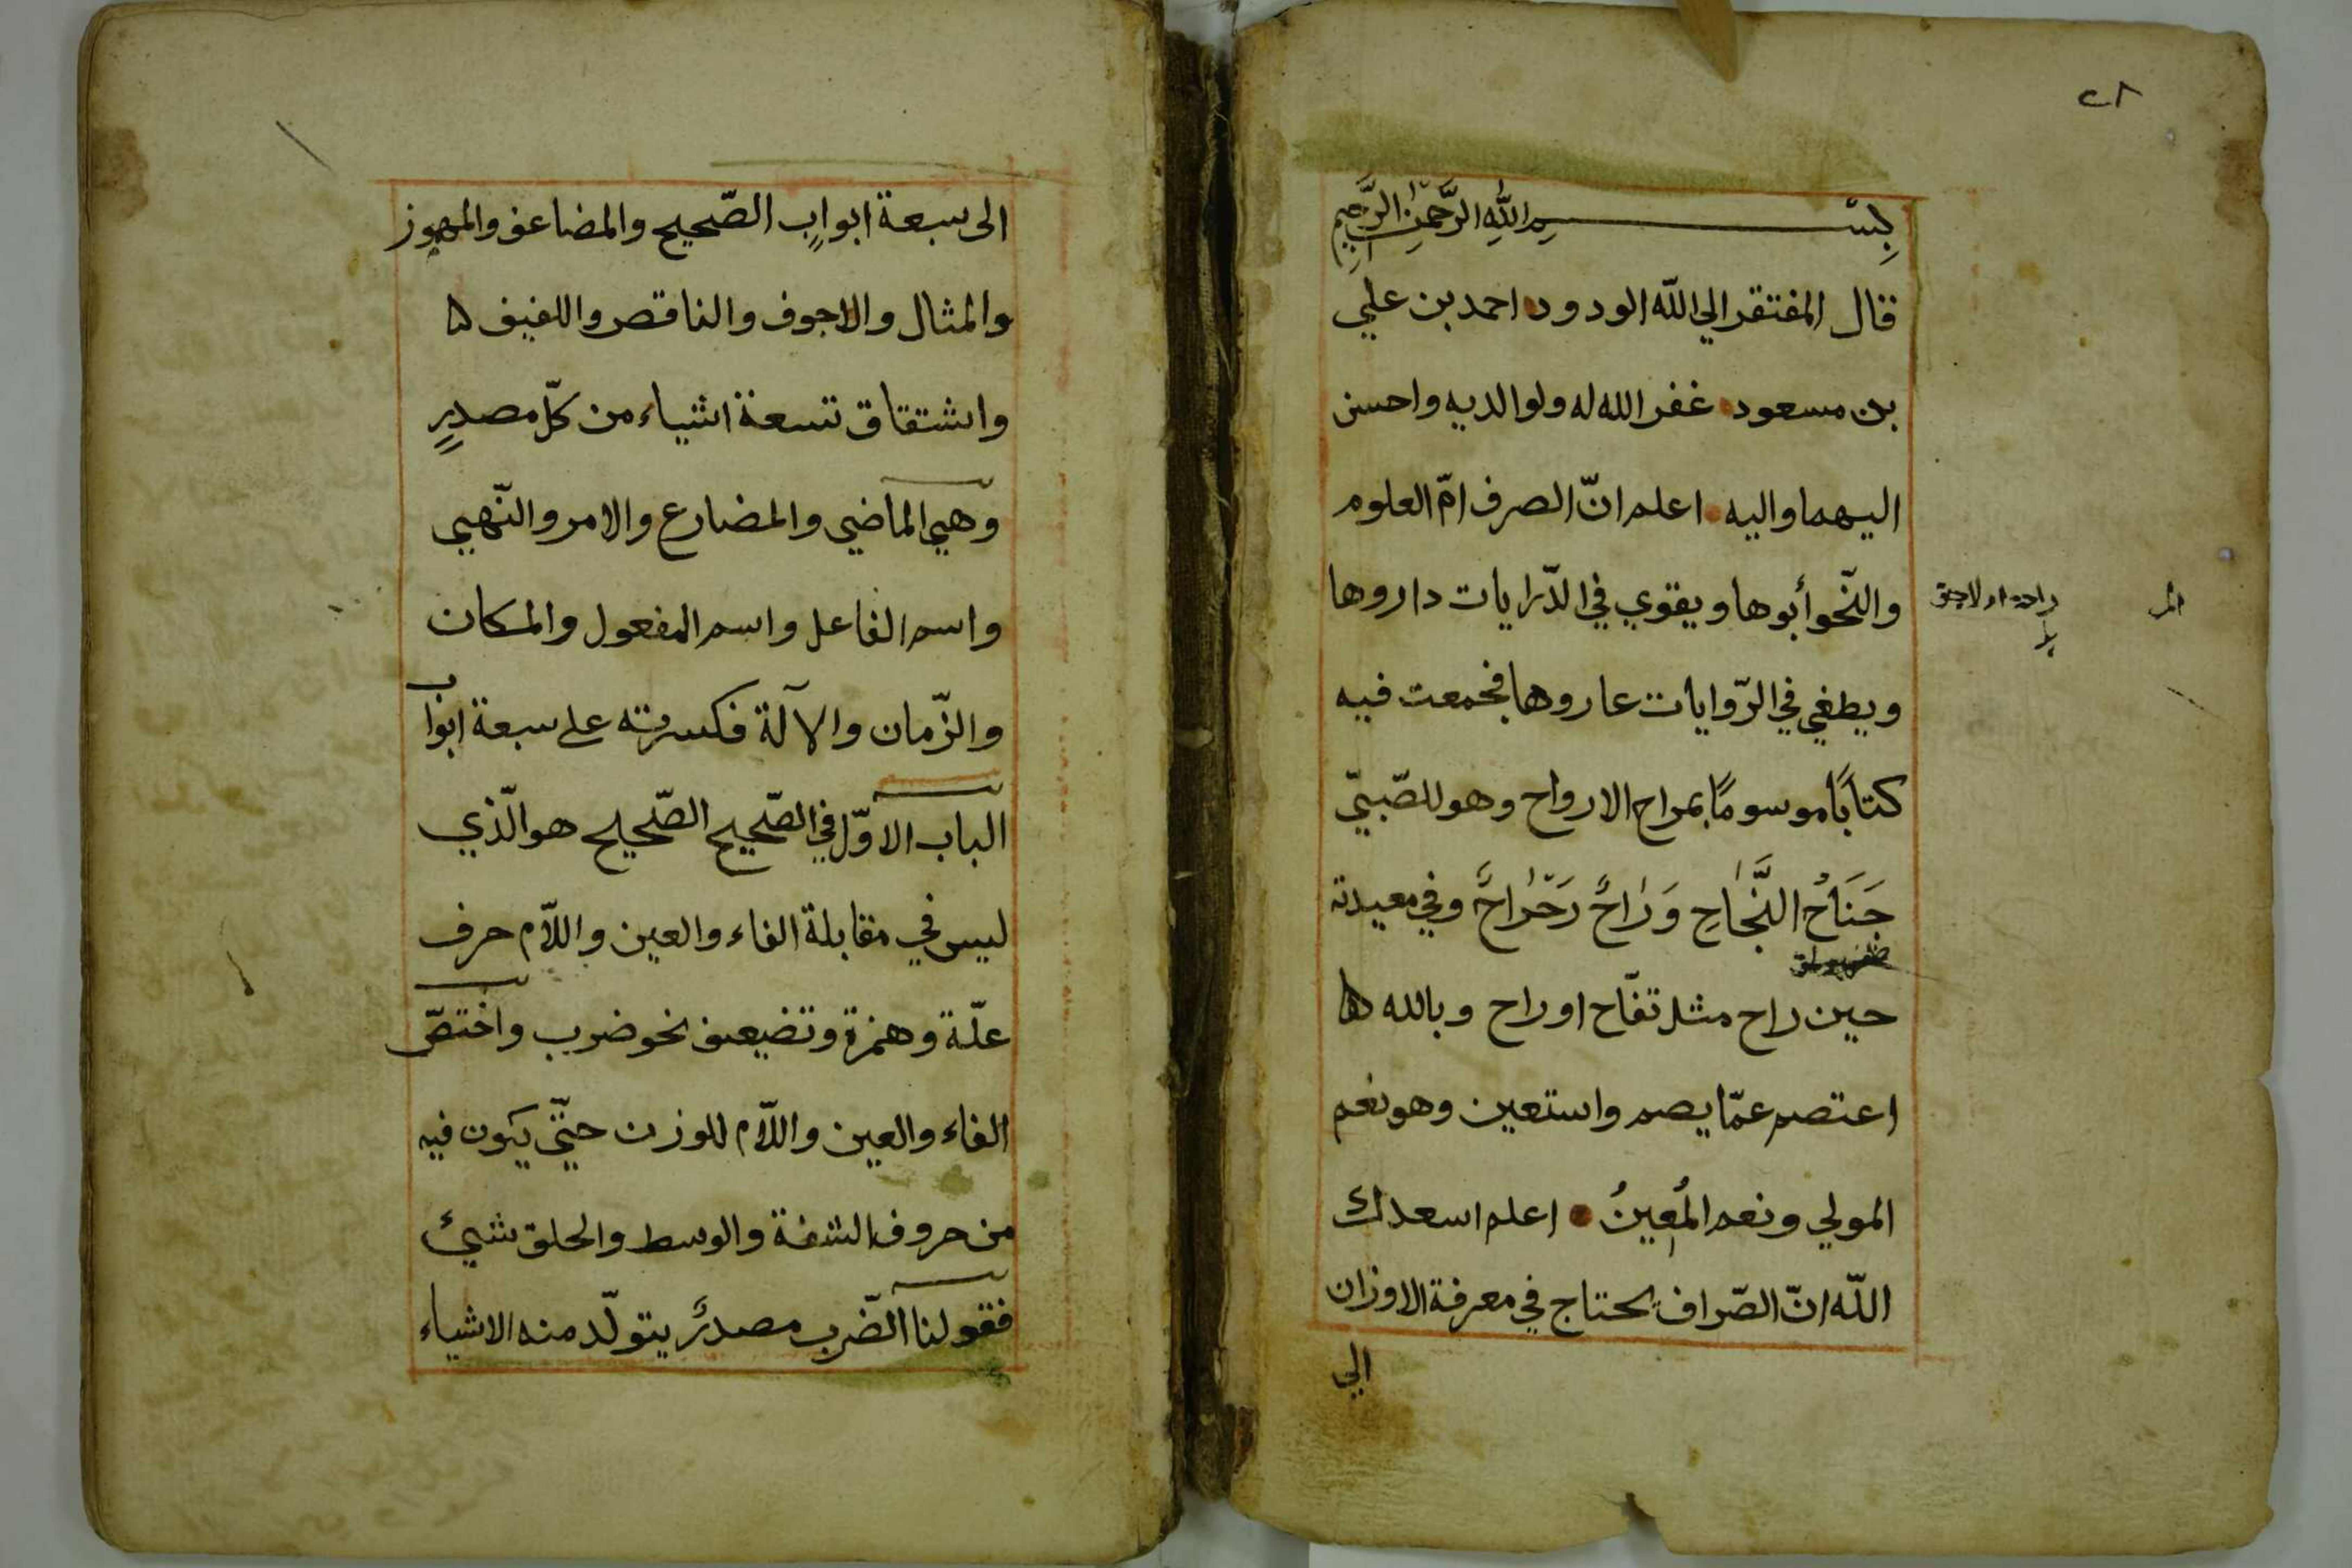 ٢٨
بسم الله الرحمن الرحيم
قال المفتقر الي الله الودود احمد بن علي
بن مسعود غفر الله له ولوالديه واحسن
اليهما واليه اعلم انّ الصرف امّ العلوم
والنّحو أبوها ويقوي في الدّرايات داروها
ويطغي في الرّوايات عاروها فجمعت فيه
كتابًا موسومًا بمراح الارواح وهو للصّبيّ
جَنَاحُ النَّجَاحِ وَرَاحٌ رَحْرَاحٌ وفي معيدته
حين راح مثل تفّاح او راح وبالله
اعتصم عمّا يصم واستعين وهو نعم
المولي ونعم المُعِينُ اعلم اسعدك
اللّه انّ الصّراف يحتاج في معرفة الاوزان
الي
الى سبعة ابوابٍ الصّحيح والمضاعف والمهموز
والمثال والاجوف والناقص واللفيف
واشتقاق تسعة اشياء من كلّ مصدرٍ
وهي الماضي والمضارع والامر والنّهي
واسم الفاعل واسم المفعول والمكان
والزّمان والآلة فكسرته على سبعة ابواب
الباب الاوّل في الصّحيح الصّحيح هو الّذي
ليس في مقابلة الفاء والعين واللاّم حرف
علّة وهمزة وتضعيف نحو ضرب واختصّ
الفاء والعين واللاّم للوزن حتّي يكون فيه
من حروف الشفة والوسط والحلق شيئ
فقولنا الضّرب مصدرٌ يتولّد منه الاشياء